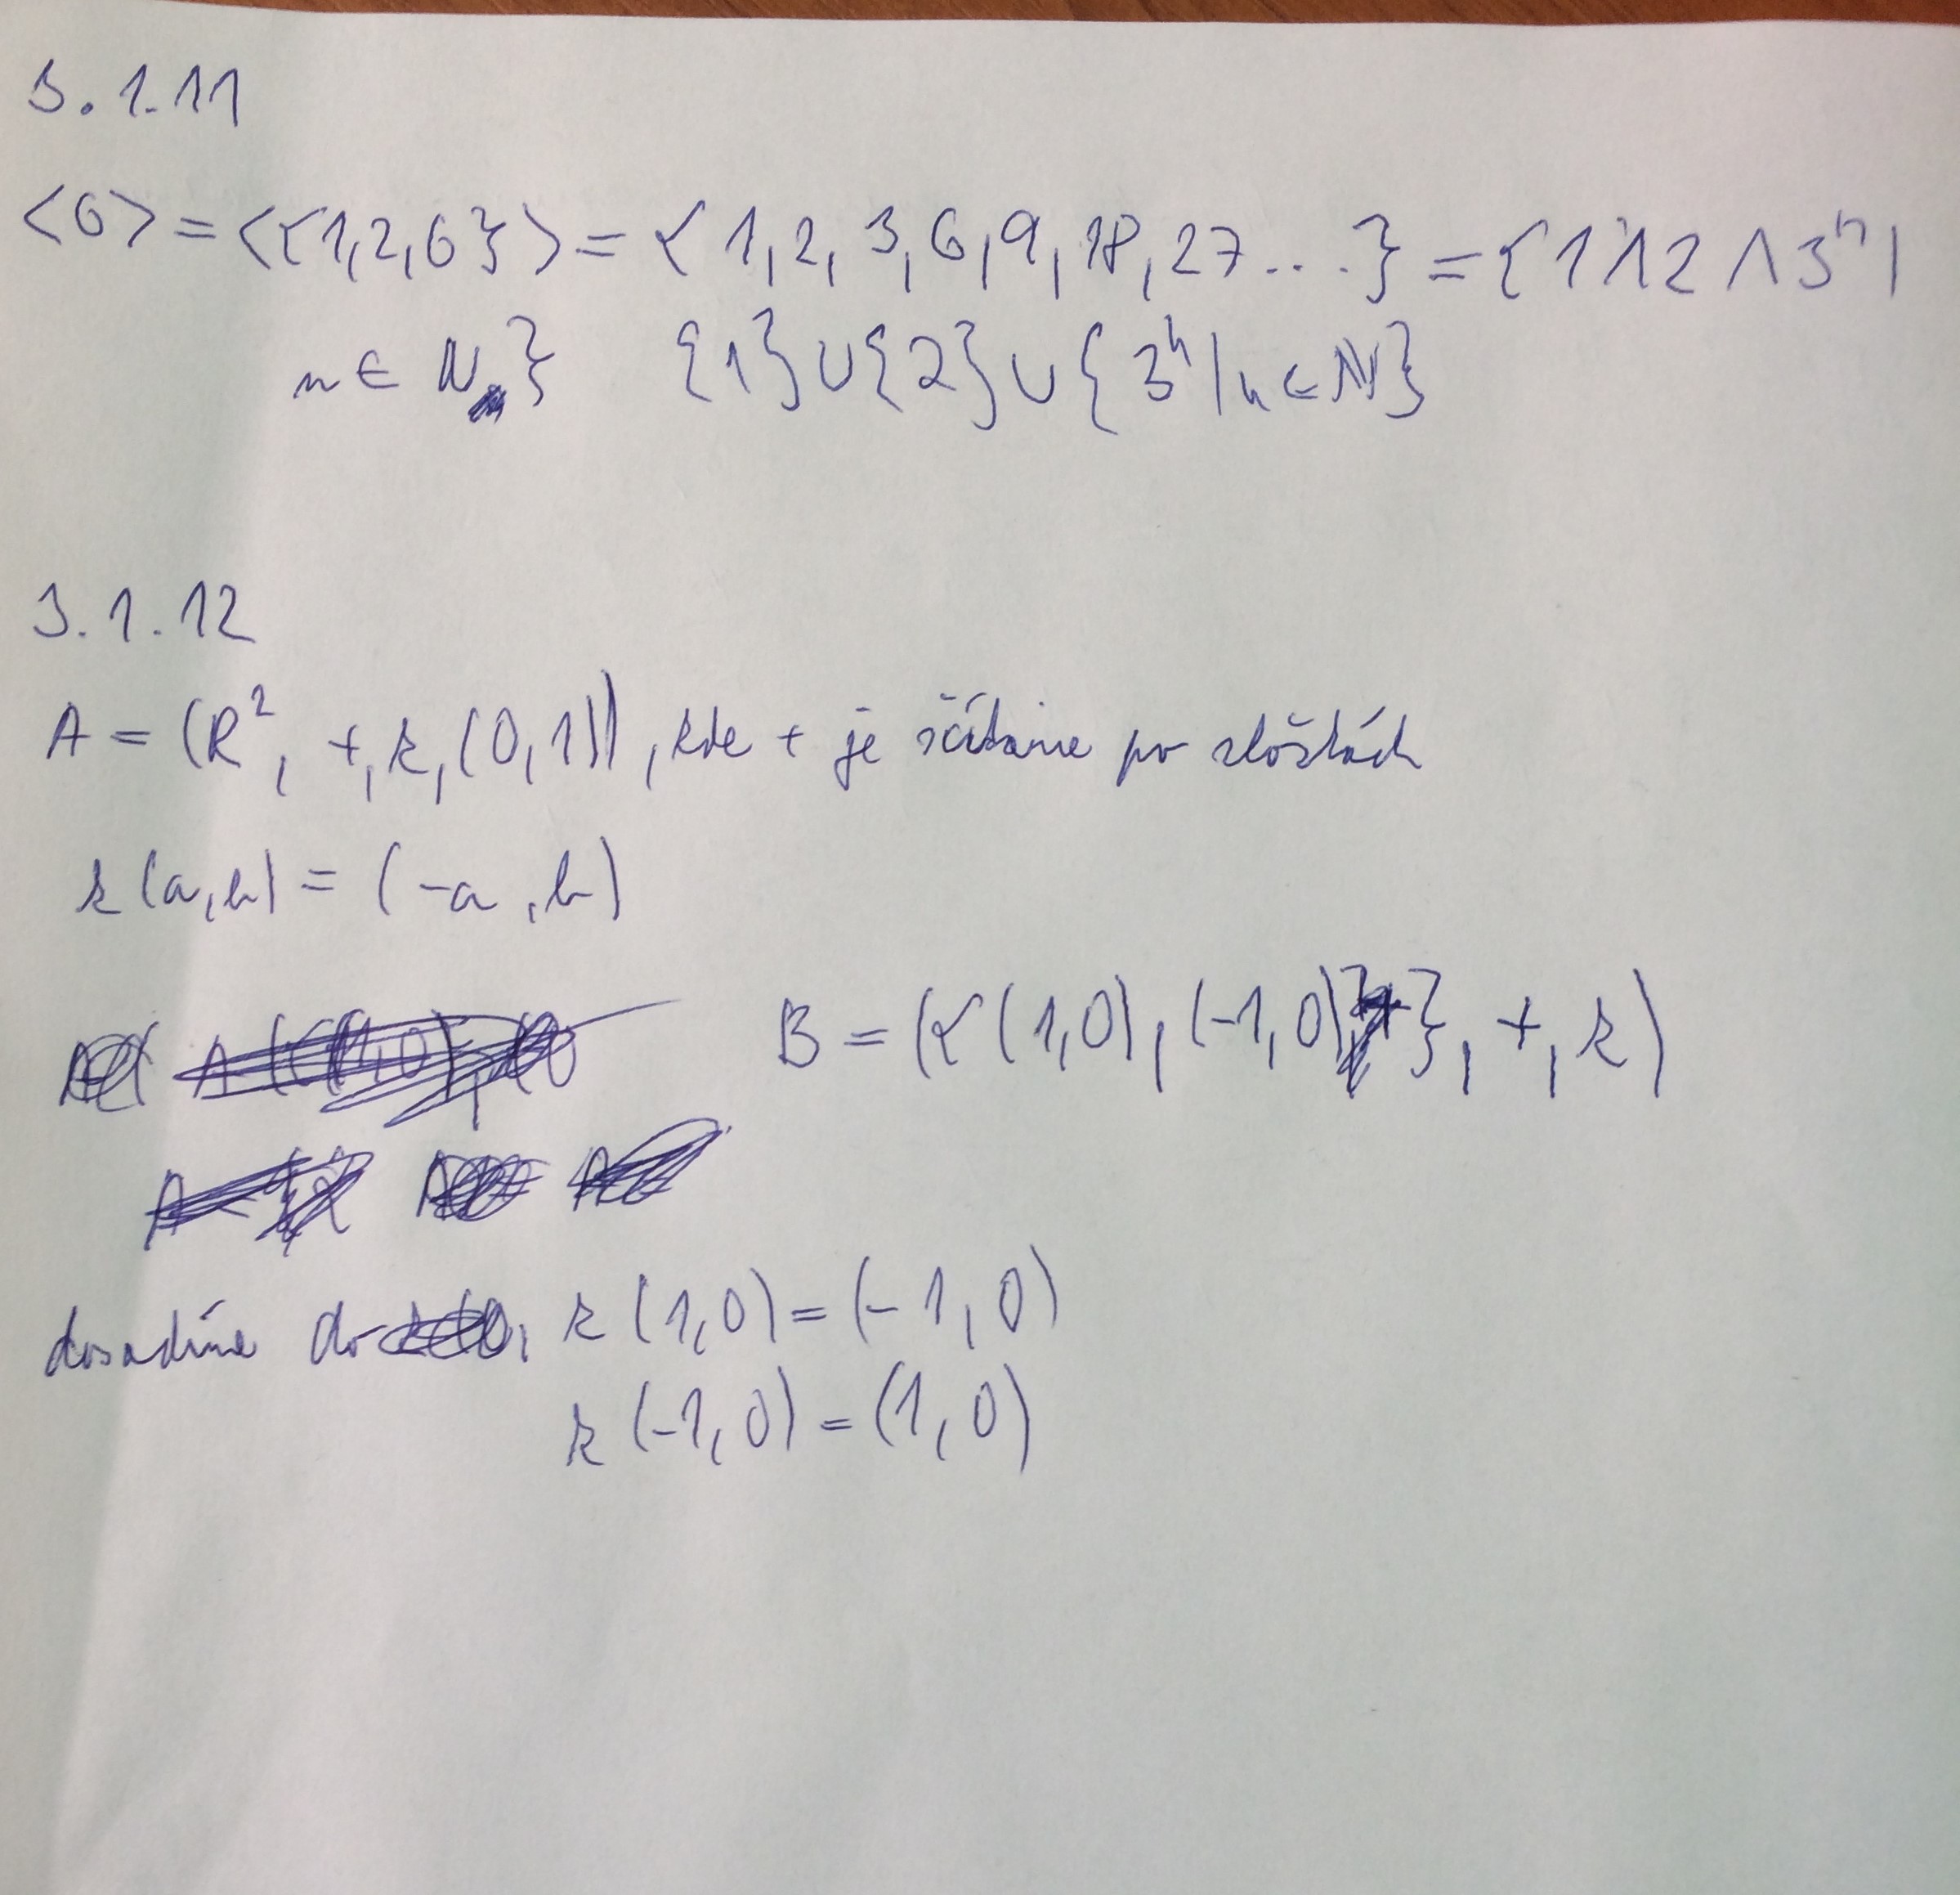 3.1.11
<6> = <{1,2,6}> = { 1, 2, 3, 6, 9, 18, 27 ... } = { 1 ∧ 2 ∧ 3ⁿ |
n ∈ N } {1} ∪ {2} ∪ { 3ⁿ | n ∈ N }
3.1.12
A = (R², +, r, (0,1)), kde + je sčítanie po složkách
r(a,b) = (-a, b)
B = ({ (1,0), (-1,0) }, +, r)
dosadíme do r(1,0) = (-1,0)
r(-1,0) = (1,0)